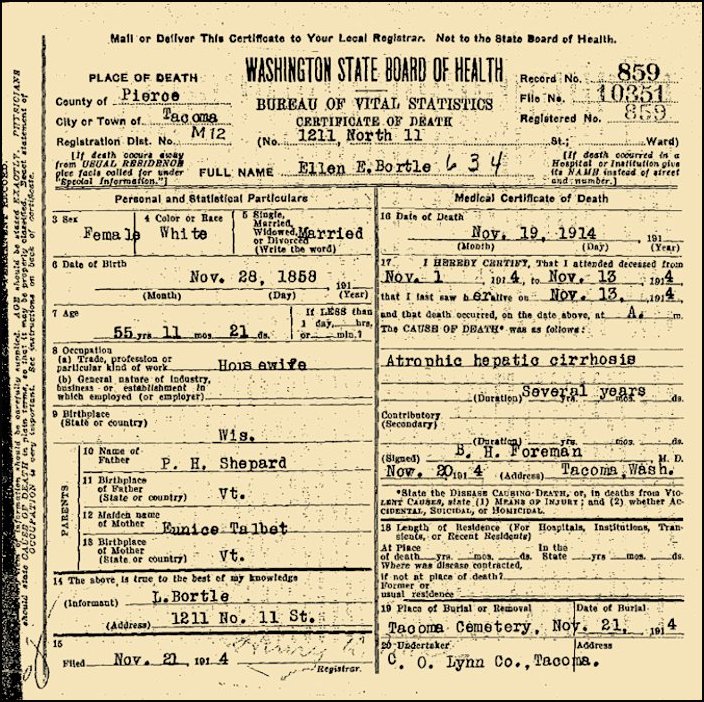 Mail or Deliver This Certificate to Your Local Registrar. Not to the State Board of Health.
WASHINGTON STATE BOARD OF HEALTH
BUREAU OF VITAL STATISTICS
CERTIFICATE OF DEATH
PLACE OF DEATH
County of Pierce
City or Town of Tacoma
Registration Dist. No. M12
(No. 1211, North 11 St.; Ward)
Record No. 859
File No. 10351
Registered No. 859
[If death occurs away
from USUAL RESIDENCE
give facts called for under
"Special Information."]
FULL NAME Ellen E. Bortle 634
[If death occurred in a
Hospital or Institution give
its NAME instead of street
and number.]
Personal and Statistical Particulars
3 Sex
Female
4 Color or Race
White
5 Single,
Married,
Widowed,
or Divorced
(Write the word)
Married
6 Date of Birth
Nov. 28, 1858 191
(Month) (Day) (Year)
7 Age
55 yrs 11 mos. 21 ds.
If LESS than
1 day, hrs.
or min.?
8 Occupation
(a) Trade, profession or
particular kind of work Housewife
(b) General nature of industry,
business or establishment in
which employed (or employer)
9 Birthplace
(State or country)
Wis.
PARENTS
10 Name of
Father P. H. Shepard
11 Birthplace
of Father
(State or country) Vt.
12 Maiden name
of Mother Eunice Talbet
13 Birthplace
of Mother
(State or country) Vt.
14 The above is true to the best of my knowledge
(Informant) L. Bortle
(Address) 1211 No. 11 St.
15
Filed Nov. 21 191 4
Registrar.
Medical Certificate of Death
16 Date of Death
Nov. 19, 1914 191
(Month) (Day) (Year)
17 I HEREBY CERTIFY, That I attended deceased from
Nov. 1 191 4, to Nov. 13 191 4,
that I last saw h er alive on Nov. 13, 191 4,
and that death occurred, on the date above, at A. m.
The CAUSE OF DEATH* was as follows:
Atrophic hepatic cirrhosis
(Duration) Several years yrs. mos. ds.
Contributory
(Secondary)
(Duration) yrs. mos. ds.
(Signed) B. H. Foreman M. D.
Nov. 20 191 4 (Address) Tacoma, Wash.
*State the DISEASE CAUSING DEATH, or, in deaths from VIO-
LENT CAUSES, state (1) MEANS OF INJURY; and (2) whether AC-
CIDENTAL, SUICIDAL, or HOMICIDAL.
18 Length of Residence (For Hospitals, Institutions, Tran-
sients, or Recent Residents)
At Place In the
of death yrs. mos. ds. State yrs. mos. ds.
Where was disease contracted,
if not at place of death?
Former or
usual residence
19 Place of Burial or Removal Date of Burial
Tacoma Cemetery, Nov. 21, 191 4
20 Undertaker Address
C. O. Lynn Co., Tacoma.